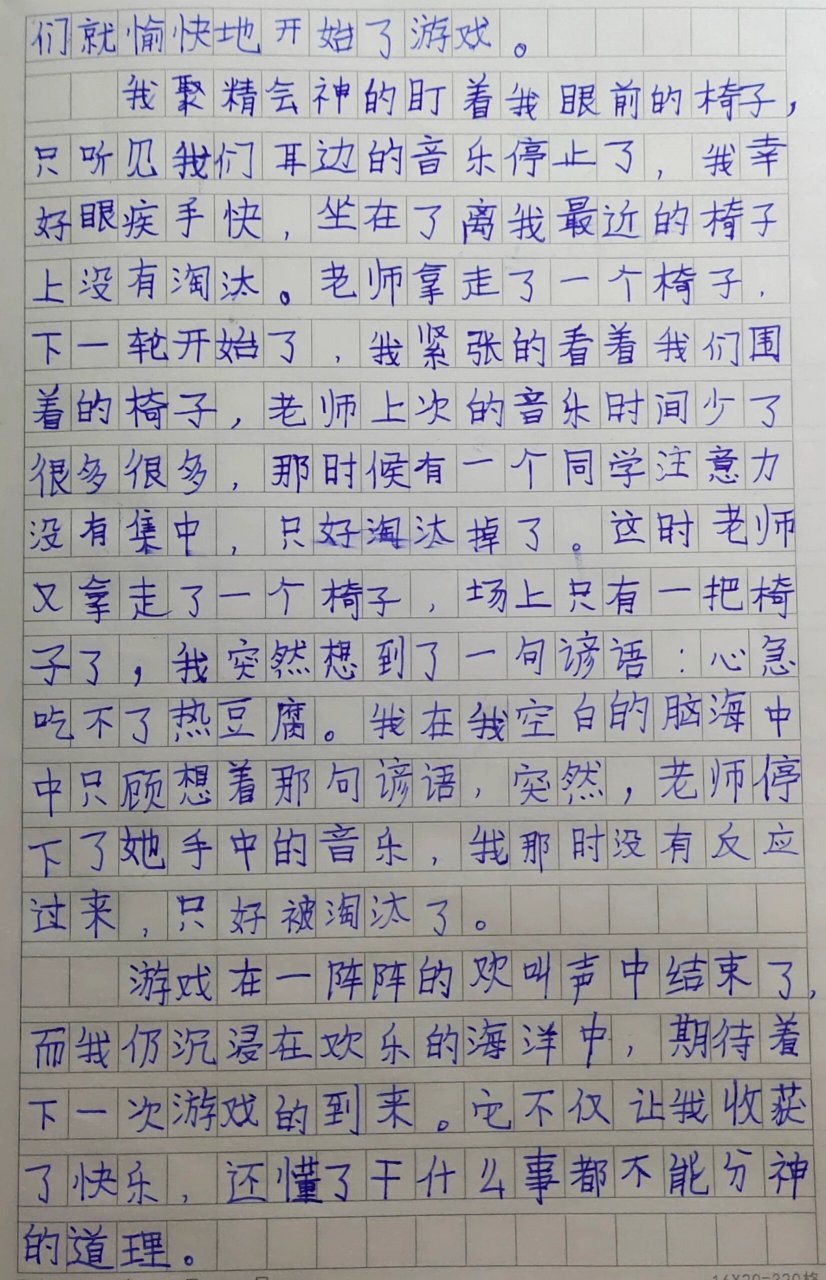 们就愉快地开始了游戏。
我聚精会神的盯着我眼前的椅子，
只听见我们耳边的音乐停止了，我幸
好眼疾手快，坐在了离我最近的椅子
上没有淘汰。老师拿走了一个椅子，
下一轮开始了，我紧张的看着我们围
着的椅子，老师上次的音乐时间少了
很多很多，那时候有一个同学注意力
没有集中，只好淘汰掉了。这时老师
又拿走了一个椅子，场上只有一把椅
子了，我突然想到了一句谚语：心急
吃不了热豆腐。我在我空白的脑海中
中只顾想着那句谚语，突然，老师停
下了她手中的音乐，我那时没有反应
过来，只好被淘汰了。
游戏在一阵阵的欢叫声中结束了，
而我仍沉浸在欢乐的海洋中，期待着
下一次游戏的到来。它不仅让我收获
了快乐，还懂了干什么事都不能分神
的道理。
16X20=320格